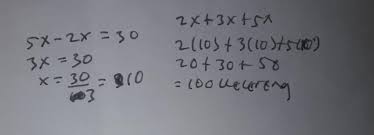 5x - 2x = 30
3x = 30
x = 30/3 = 10
2x + 3x + 5x
2(10) + 3(10) + 5(10)
20 + 30 + 50
= 100 kelereng